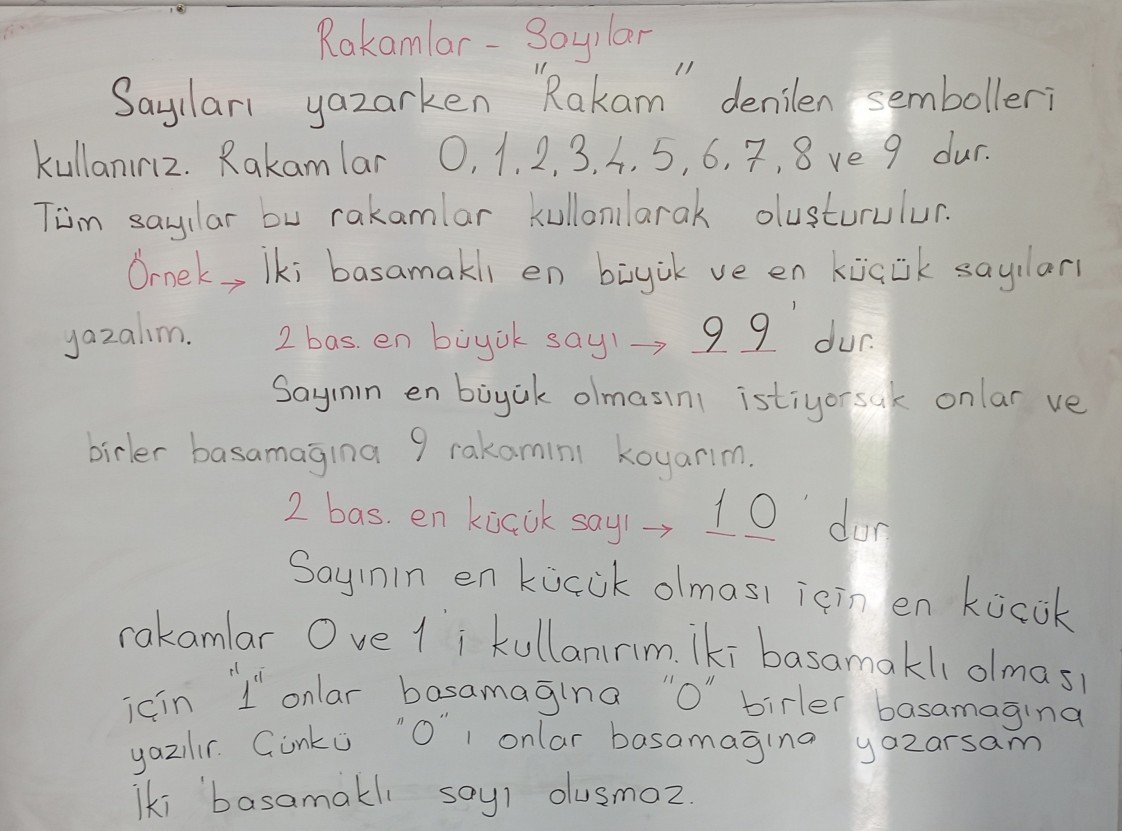 Rakamlar - Sayılar
Sayıları yazarken "Rakam" denilen sembolleri
kullanırız. Rakamlar 0, 1, 2, 3, 4, 5, 6, 7, 8 ve 9 dur.
Tüm sayılar bu rakamlar kullanılarak oluşturulur.
Örnek → İki basamaklı en büyük ve en küçük sayıları
yazalım. 2 bas. en büyük sayı → 99' dur.
Sayının en büyük olmasını istiyorsak onlar ve
birler basamağına 9 rakamını koyarım.
2 bas. en küçük sayı → 10' dur.
Sayının en küçük olması için en küçük
rakamlar 0 ve 1'i kullanırım. İki basamaklı olması
için "1" onlar basamağına "0" birler basamağına
yazılır. Çünkü "0" ı onlar basamağına yazarsam
İki basamaklı sayı oluşmaz.